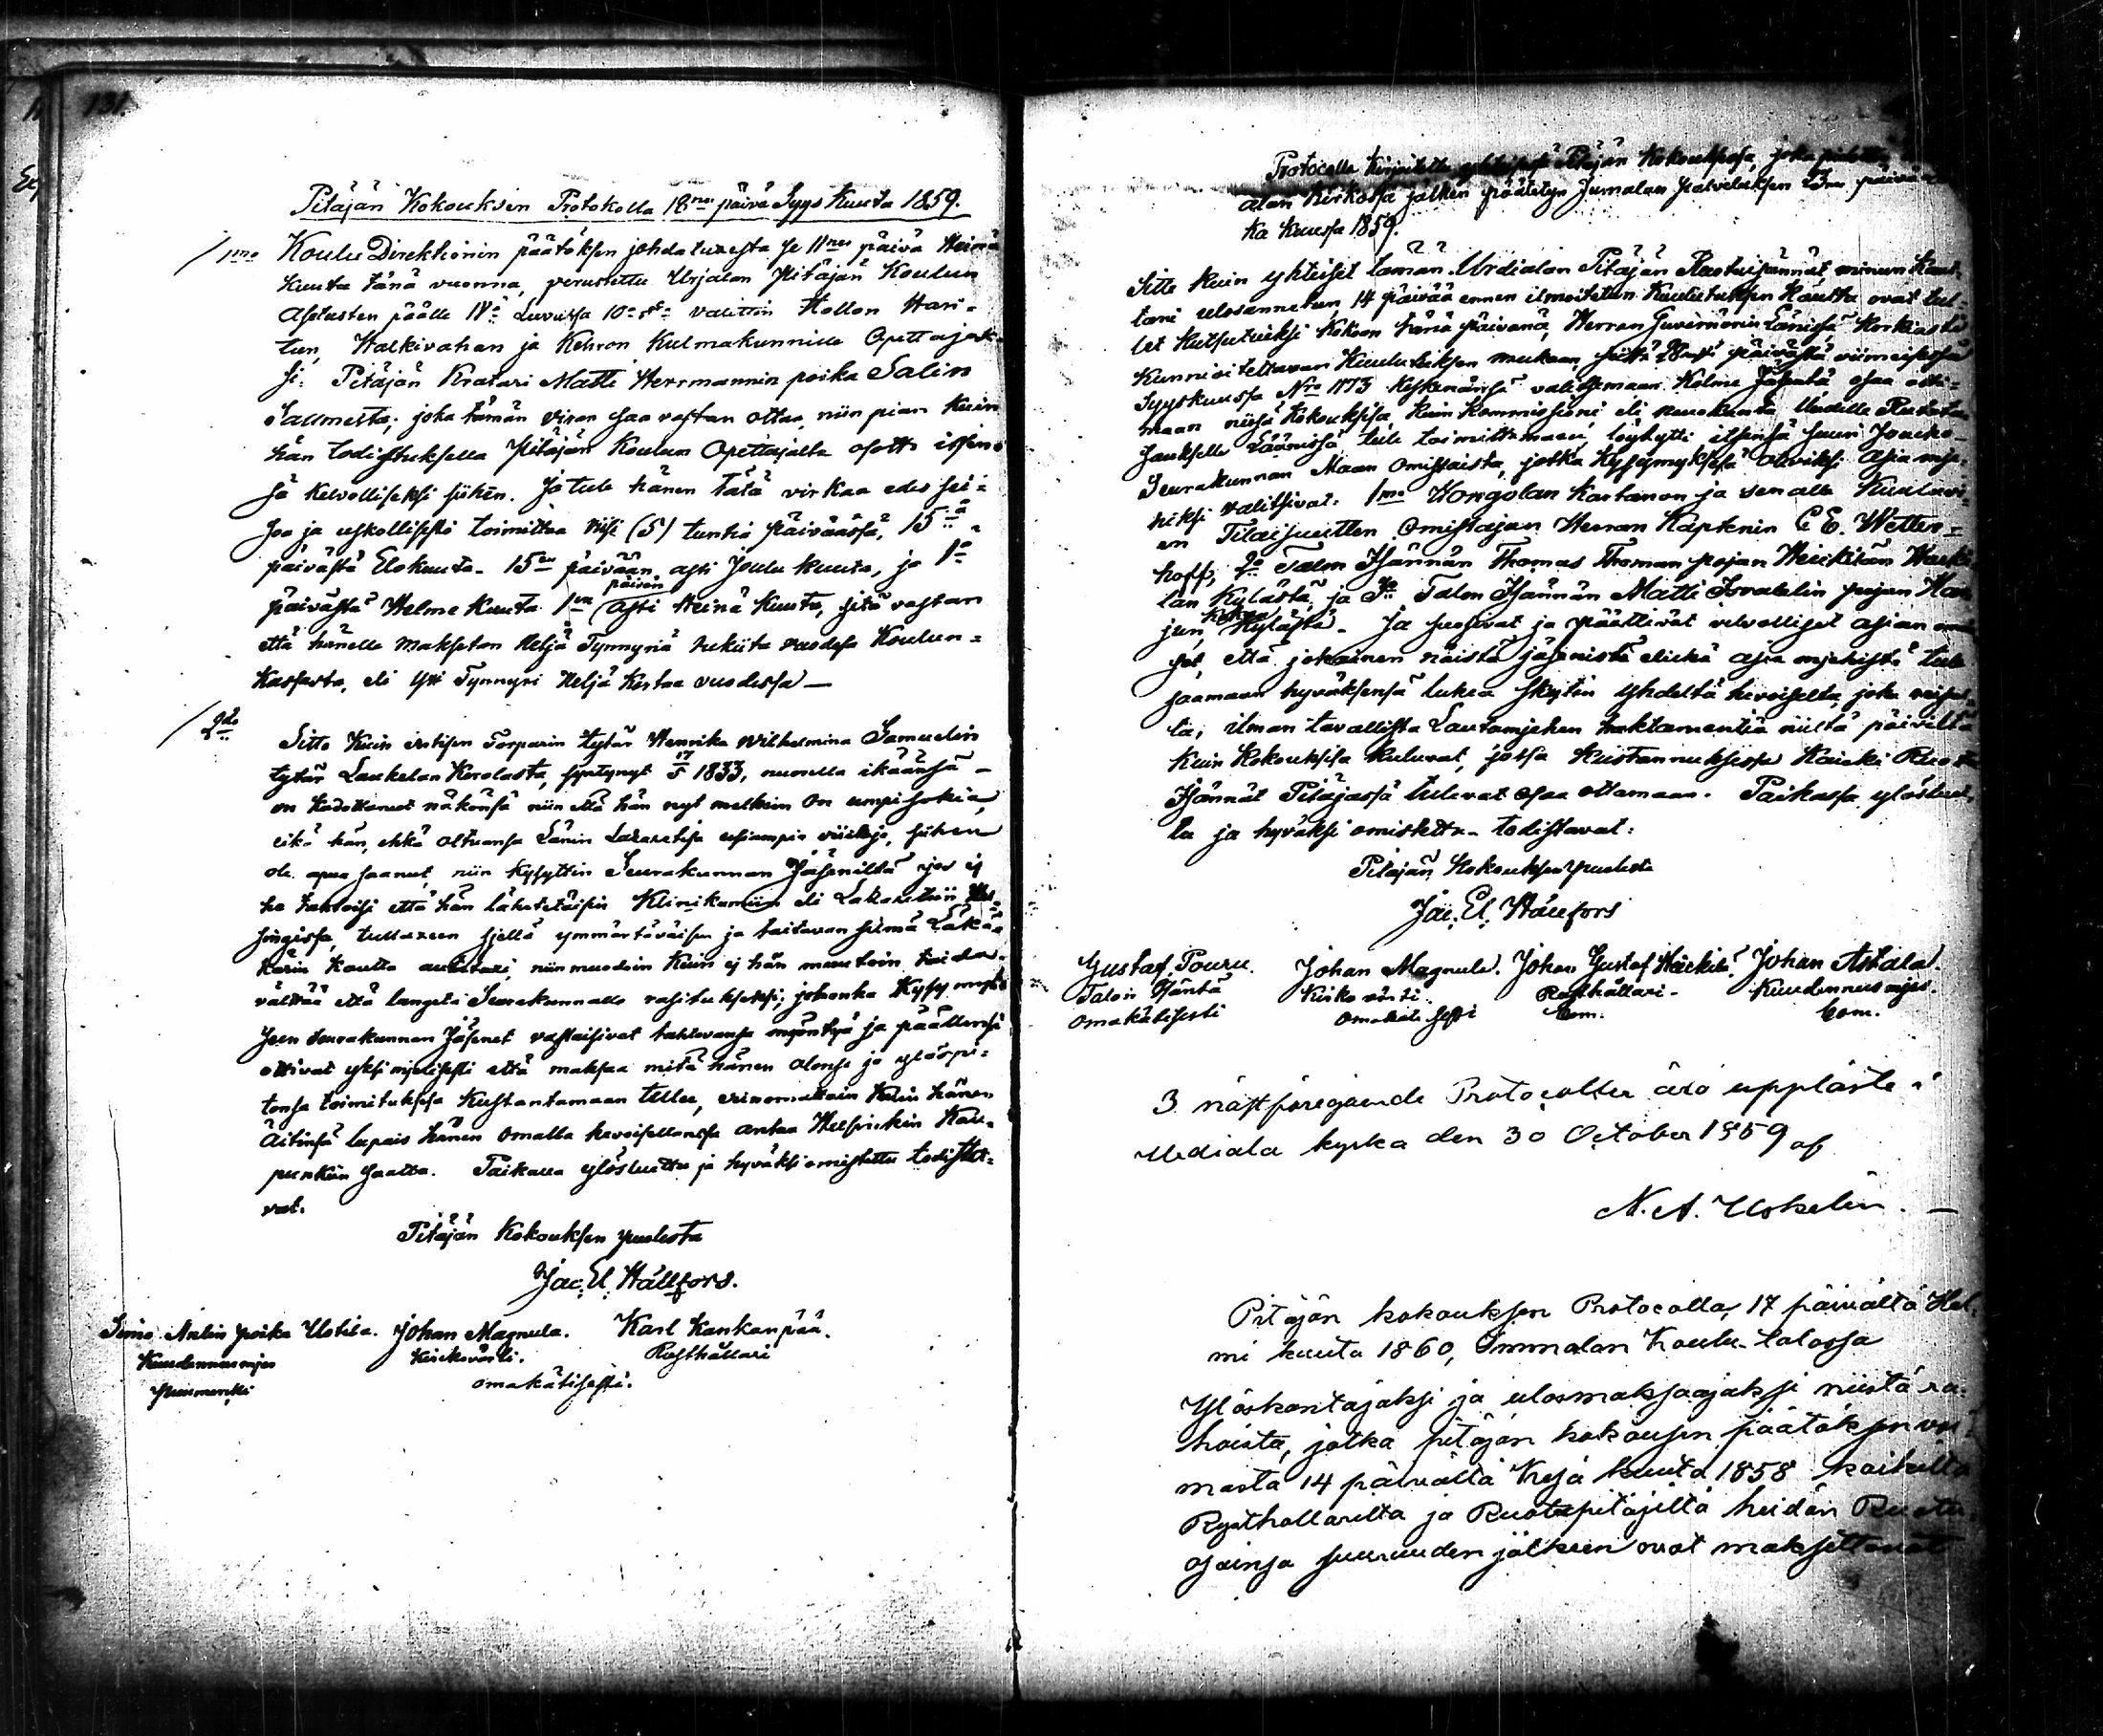 131.
Pitäjän Kokouksen Protokolla 18nes päivä Syys Kuuta 1859.
1mo Koulu Direktionin päätöksen johdatuxesta se 11nes päivä Heinä
kuuta tänä vuonna, perustettu Urjalan Pitäjän Koulun
Asetusten päälle IVä Luvussa 10 § valittin Hollon Hari-
tun, Halkivahan ja Kehron Kulmakunnille Opettajak-
si: Pitäjän Kratari Matti Herrmannin poika Salin
Salmesta; joka tämän viran saa vastan ottaa, niin pian kuin
hän todistuksella Pitäjän Koulun Opettajalta osotta itsen-
sä kelvolliseksi siihen. Ja tule hänen tätä virkaa edes sei-
soa ja uskollisesti toimittaa viisi (5) tuntia päiväässä, 15ä
päivästä Elokuuta 15en päivään asti Joulu kuuta, ja 1ä
päivästä Helme Kuuta 1en päivän asti Heinä Kuuta, sitä vastan
että hänelle maksetan Neljä Tynnyriä rukiita vuodesa Koulun-
Kassasta, eli yxi Tynnyri Neljä kertaa vuodessa —
2do Sitte Kuin entisen Torparin tytär Henrika Wilhelmina Samuelin
tytär Laukelan Kerolasta, syntynyt 17/5 1833, nuorella ikäänsä
on kadottanut näkönsä niin että hän nyt melkein on umpisokia,
eikä hän, ehkä oltuansa Länin Lazaretisa usiampia viikoja, siihen
ole apua saanut, niin kysyttin Seurakunnan Jäseniltä jos ej
he tahtoisi että hän lähetetäisiin Klinikumiin eli Lazaretiin Hel-
singissa, tullaxeen sjellä ymmärtäväisen ja taitavan silmä Läkä-
kärin kautta autetuxi, niinmuodoin kuin ej hän muutoin taida
välttää että langeta Seurakunnalle rasituxeksi; johonka kysymyk-
seen seurakunnan Jäsenet vastaisivat tahtovansa myöntyä ja päällensä
ottivat yksimjelisesti että maksaa mitä hänen olonsa ja ylöspi-
tonsa toimituksesa kustantamaan tullee, erinomattain kuin hänen
Äitinsä lupais hänen omalla hevoisellansa antaa Helsinkin Kau-
punkiin saatta. Paikalla ylösluettu ja hyväksi omistettu todista-
vat.
Pitäjän Kokouksen puolesta
Jac. El. Hällfors.
Simo Antin poika Uotila. Johan Magnula. Karl Kankanpää.
Kuudennusmjes Kirkovärti. Rusthållari
puumerkki omakätisesti.
Protocolla kirjoitettu yhteisesä Pitäjän Kokouksesa, joka pidettin
alan Kirkossa jälken päätetyn Jumalan palveluksen 23nes päivä
ka kuussa 1859.
Sitte kuin yhteiset tämän Urdialan Pitäjän Ruotuisännät, minun kaut-
tani ulosannetun, 14 päivää ennen ilmoitetun Kuulutuksen kautta ovat tul-
let kutsutuiksi kokoon tänä päivänä, Herran Guvernörin Länissä korkiasti
kunnioitettavan Kuulutuksen mukaan, siitä 28 päivästä viimeisessä
Syyskuussa No 1173 keskenänsä valitsemaan Kolme Jäsentä osaa otta-
maan niisä Kokouksisa, kuin Kommissioni eli neuokunta Uudelle Ruotu
Jaukselle Läänissä tule toimittamaan, löytytti itsensä suuri Joucko
Seurakunnan Maan omistaista, jotka kysymyksesä oleviksi asia mje-
hiksi valitsivat: 1mo Hongolan Kartanon ja sen alle kuuluvi-
en Tilaisuutten omistajan Herran Kaptenin C E. Wetter-
hoff; 2o Talon Isännän Thomas Thoman pojan Heickilän Hauki-
lan kylästä, ja 3o Talon Isännän Matti Israelelin pojan Kan
jun kylästä. Ja suosivat ja päättivät velvolliset asian oma
set, että jokainen näistä jäsenistä elickä asia mjehistä tule
saamaan hyväksensä lukia skytin yhdeltä hevoiselta, joka reisul
la, ilman tavallista Lautamjehen traktamentiä niiltä päiviltä
kuin Kokouksisa kuluvat, jossa kustannuksesa kaicki Ruotu
Isännät Pitäjässä tulevat osaa ottamaan. Paikassa ylösluet-
tu ja hyväksi omistettu todistavat:
Pitäjän Kokouksen puolesta
Jac. El. Hällfors
Gustaf Pouru. Johan Magnula. Johan Gustaf Häckilä. Johan Astala.
Talon Isäntä Kirko värti. Rusthållari. Kuudennusmjes.
omakätisesti omakätisesti Eom. Eom.
3 näst föregående Protocoller äro uppläste i
Urdiala kyrka den 30 October 1859 af
N. A. Uskelin. —
Pitäjän kokouksen Protocolla, 17 päivältä Hel-
mi kuuta 1860, Ommalan Koulu-talossa
Ylöskantajaksi ja ulosmaksaajaksi niistä ra-
hoista, jotka pitäjän kokousen päätöksen voi
masta 14 päivältä Kesä kuuta 1858 kaikilta
Rysthollarilta ja Ruotupitäjiltä heidän Ruotu
osainsa suuruuden jälkeen ovat maksettavat